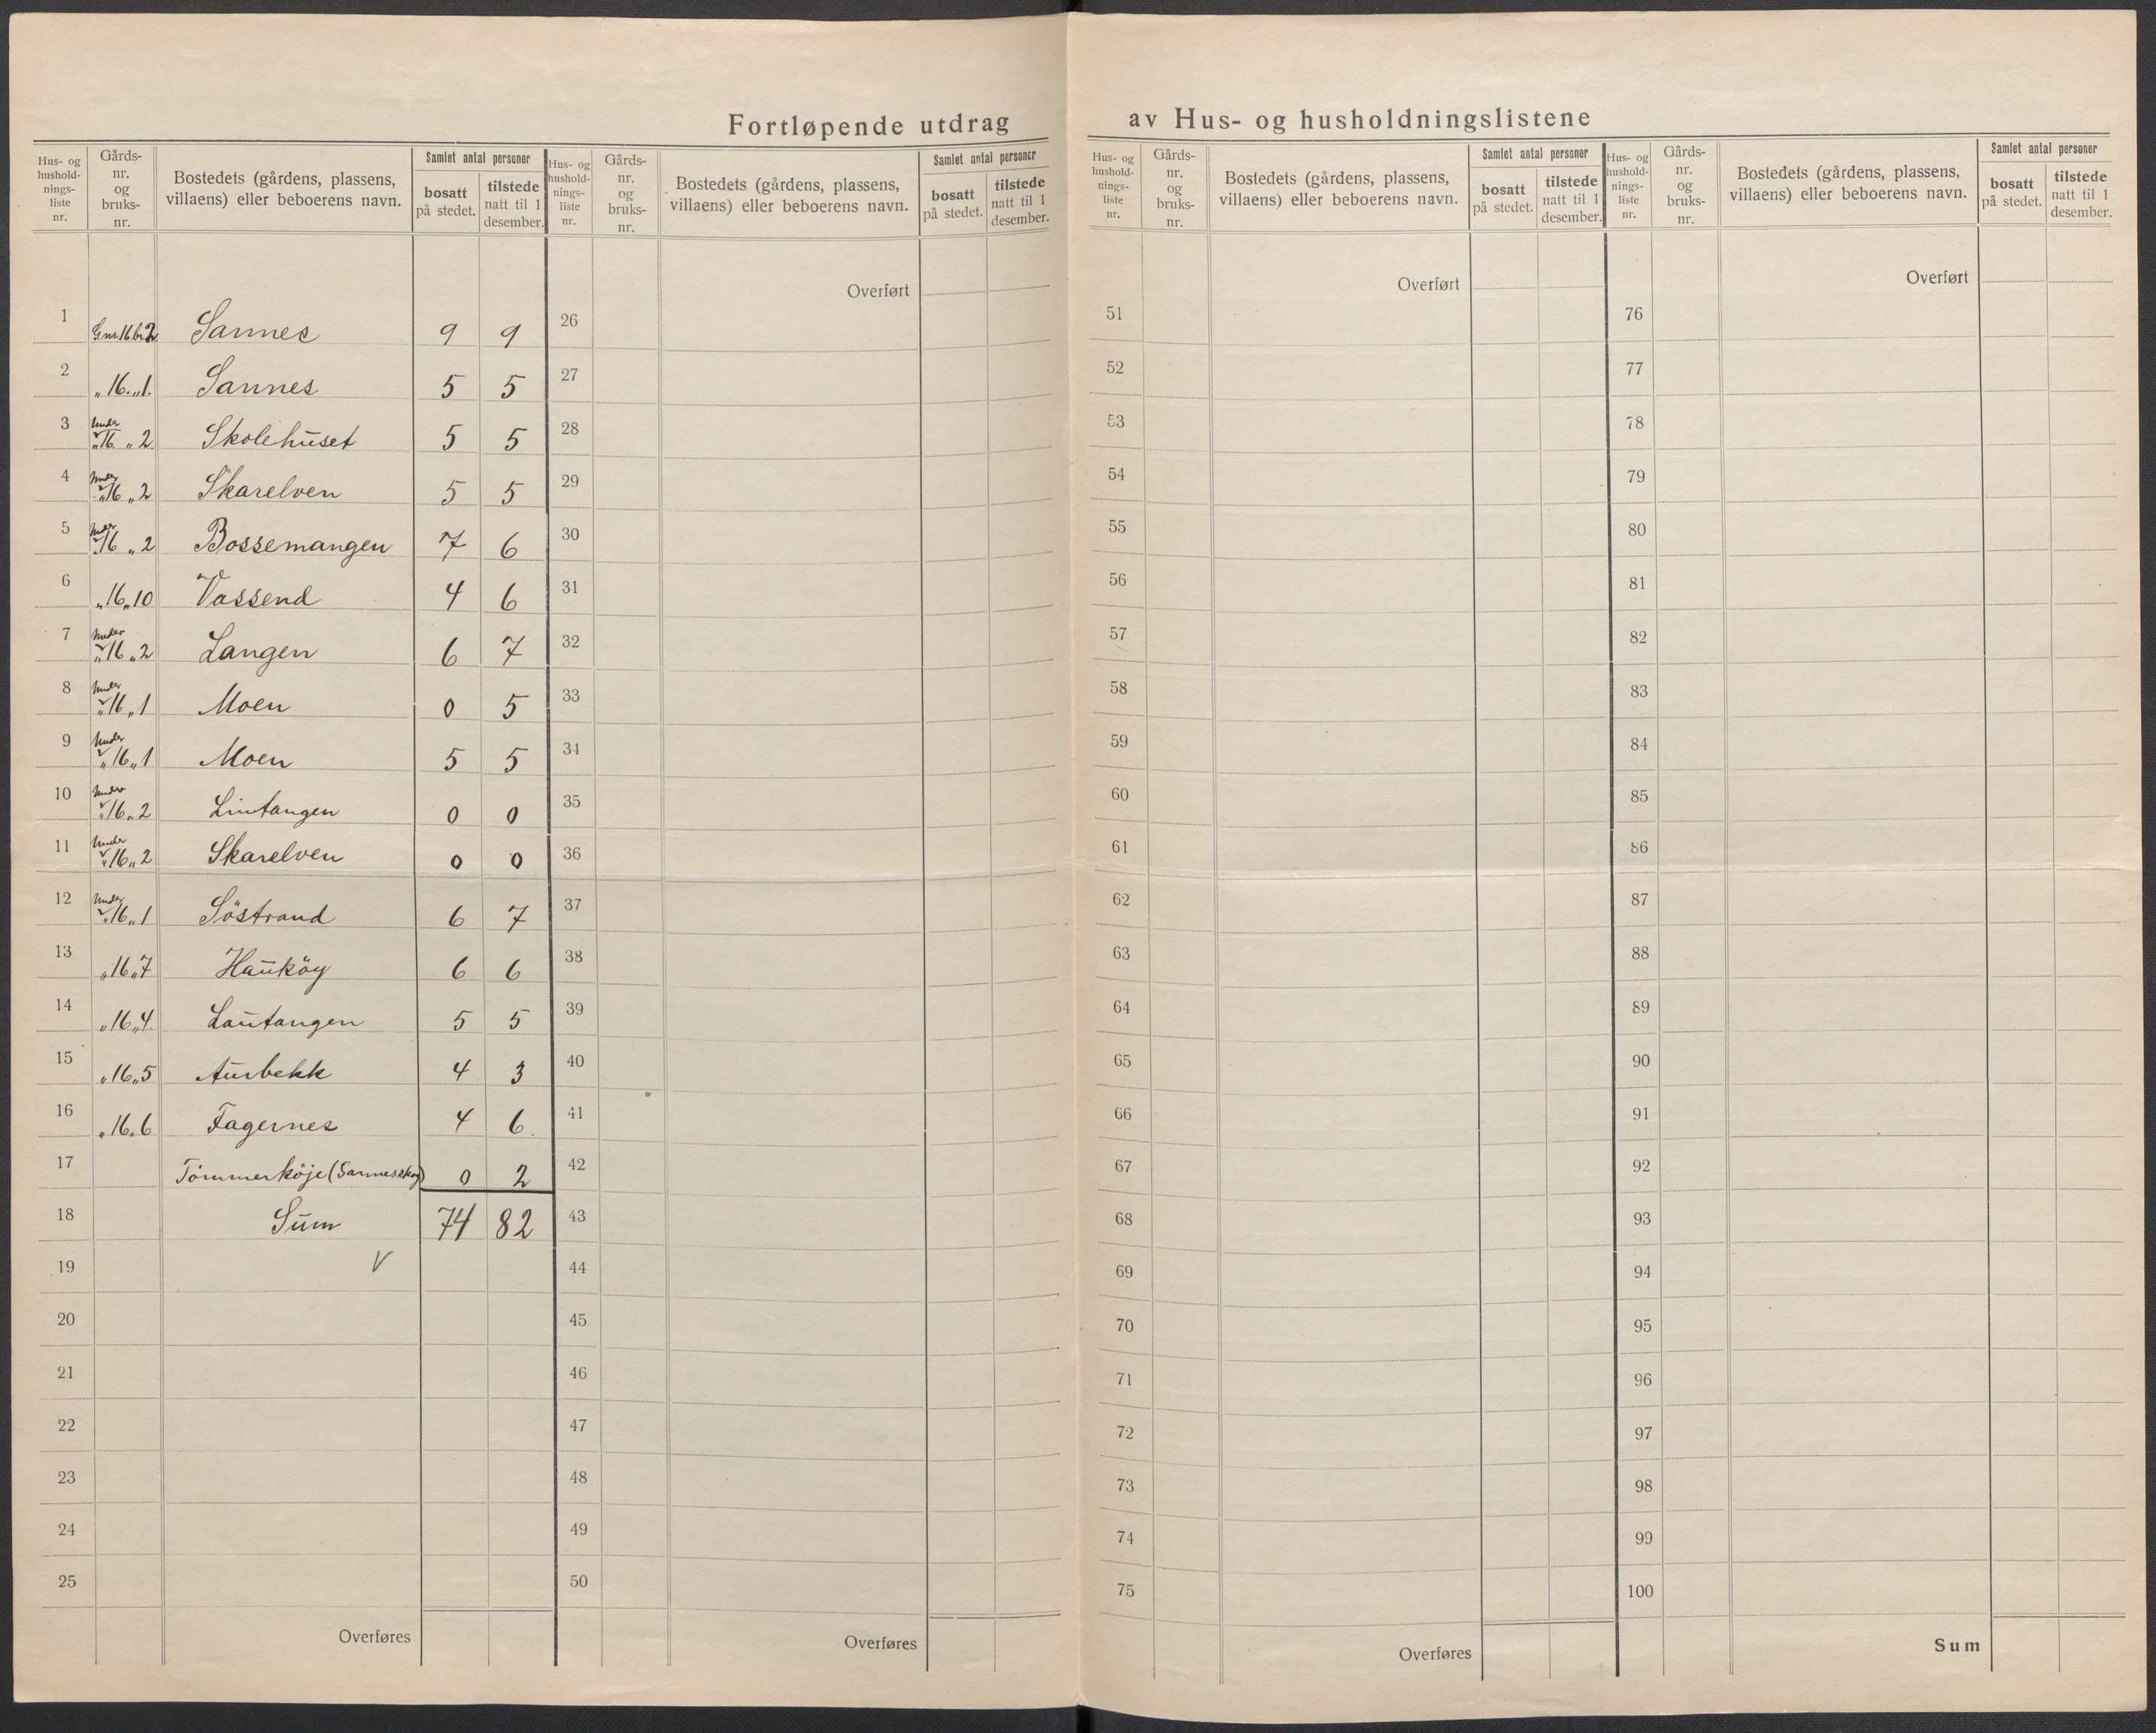 Fortløpende utdrag av Hus- og husholdningslistene
Hus- og hushold-nings-liste nr. | Gårds-nr. og bruks-nr. | Bostedets (gårdens, plassens, villaens) eller beboerens navn. | Samlet antal personer | bosatt på stedet. | tilstede natt til 1 desember.
Hus- og hushold-nings-liste nr. | Gårds-nr. og bruks-nr. | Bostedets (gårdens, plassens, villaens) eller beboerens navn. | Samlet antal personer | bosatt på stedet. | tilstede natt til 1 desember.
Hus- og hushold-nings-liste nr. | Gårds-nr. og bruks-nr. | Bostedets (gårdens, plassens, villaens) eller beboerens navn. | Samlet antal personer | bosatt på stedet. | tilstede natt til 1 desember.
Hus- og hushold-nings-liste nr. | Gårds-nr. og bruks-nr. | Bostedets (gårdens, plassens, villaens) eller beboerens navn. | Samlet antal personer | bosatt på stedet. | tilstede natt til 1 desember.
1 G.nr.16 br.2 Sannes 9 9
2 „ 16 „ 1. Sannes 5 5
3 Under „ 16 „ 2 Skolehuset 5 5
4 Under „ 16 „ 2 Skarelven 5 5
5 Under „ 16 „ 2 Bossemangen 7 6
6 „ 16 „ 10 Vassend 4 6
7 Under „ 16 „ 2 Langen 6 7
8 Under „ 16 „ 1 Moen 0 5
9 Under „ 16 „ 1 Moen 5 5
10 Under „ 16 „ 2 Lintangen 0 0
11 Under „ 16 „ 2 Skarelven 0 0
12 Under „ 16 „ 1 Söstrand 6 7
13 „ 16 „ 7 Hauköy 6 6
14 „ 16 „ 4. Lautangen 5 5
15 „ 16 „ 5 Aurbekk 4 3
16 „ 16 „ 6 Fagernes 4 6.
17 Tömmerköje (Sannesskog) 0 2
18 Sum 74 82
19 V
20
21
22
23
24
25
Overføres
Overført
26
27
28
29
30
31
32
33
34
35
36
37
38
39
40
41
42
43
44
45
46
47
48
49
50
Overføres
Overført
51
52
53
54
55
56
57
58
59
60
61
62
63
64
65
66
67
68
69
70
71
72
73
74
75
Overføres
Overført
76
77
78
79
80
81
82
83
84
85
86
87
88
89
90
91
92
93
94
95
96
97
98
99
100
Sum